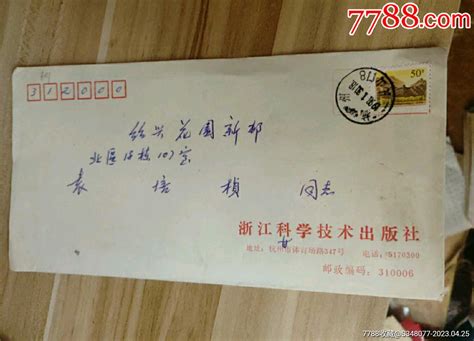 7788.com
312000
50分
绍兴 花園新邨
北區 幢107室
袁 培 桢 同志
浙江科学技术出版社
地址:杭州市体育场路347号 电话:5170300
邮政编码:310006
7788收藏@9348077-2023.04.25